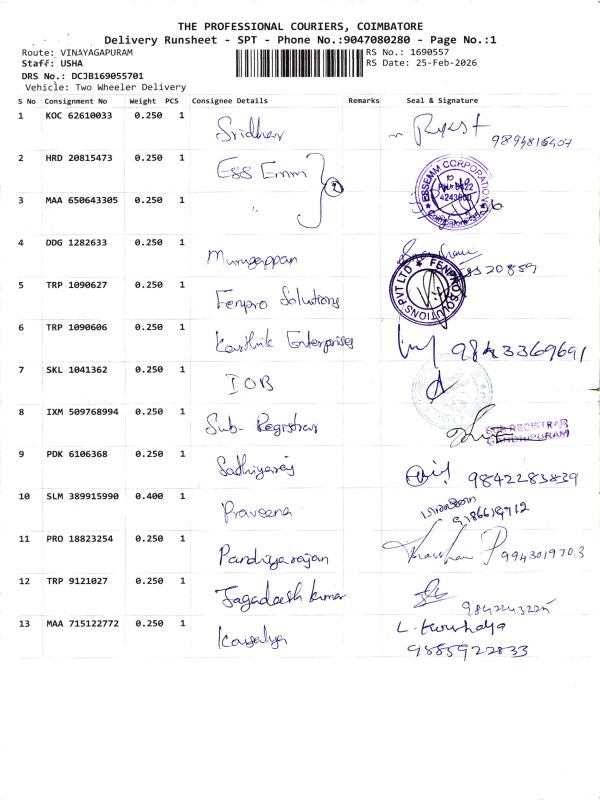 THE PROFESSIONAL COURIERS, COIMBATORE
Delivery Runsheet - SPT - Phone No.:9047080280 - Page No.:1
Route: VINAYAGAPURAM RS No.: 1690557
Staff: USHA RS Date: 25-Feb-2026
DRS No.: DCJB169055701
Vehicle: Two Wheeler Delivery
S No Consignment No Weight PCS Consignee Details Remarks Seal & Signature
1 KOC 62610033 0.250 1 Sridhar 9894816407
2 HRD 20815473 0.250 1 Ess Emm 2 ESSEMM CORPORATION
3 MAA 650643305 0.250 1 "
4 DDG 1282633 0.250 1 Murugappan
5 TRP 1090627 0.250 1 Fenpro Solutions FENPRO SOLUTIONS PVT LTD
6 TRP 1090606 0.250 1 Karthik Enterprises 9843369691
7 SKL 1041362 0.250 1 IOB
8 IXM 509768994 0.250 1 Sub-Registrar SUB REGISTRAR
GANDHIPURAM
9 PDK 6106368 0.250 1 Sathiyaraj 9842283839
10 SLM 389915990 0.400 1 Praveena
11 PRO 18823254 0.250 1 Pandiyarajan 9943019703
12 TRP 9121027 0.250 1 Jagadeesh kumar
13 MAA 715122772 0.250 1 Kavalya L. Koushalya
9885922833